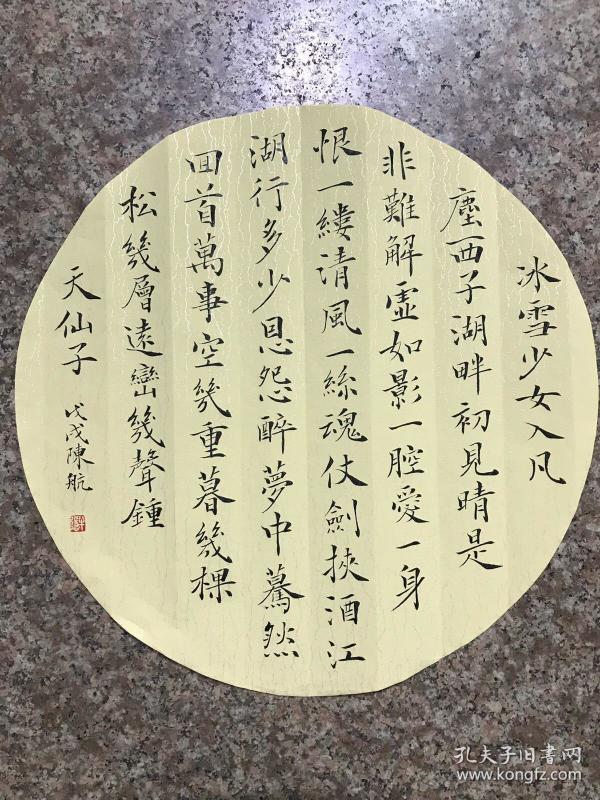 冰雪少女入凡
塵西子湖畔初見晴是
非難解虛如影一腔愛一身
恨一縷清風一絲魂仗劍挾酒江
湖行多少恩怨醉夢中驀然
回首萬事空幾重暮幾棵
松幾層遠巒幾聲鍾
天仙子
戊戌陳航
孔夫子旧書网
www.kongfz.com